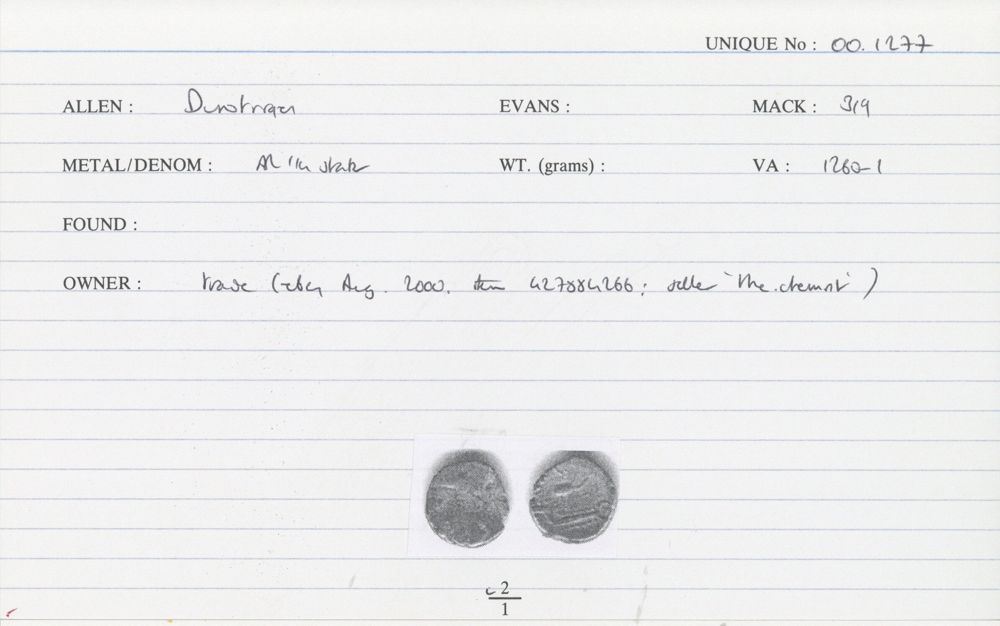 UNIQUE No : 00.1277
ALLEN : Durotrigan EVANS : MACK : 319
METAL/DENOM : AR 1/4 stater WT. (grams) : VA : 1260-1
FOUND :
OWNER : trade (ebay Aug. 2000. item 427884266; seller 'the.chemist')
c 2
1